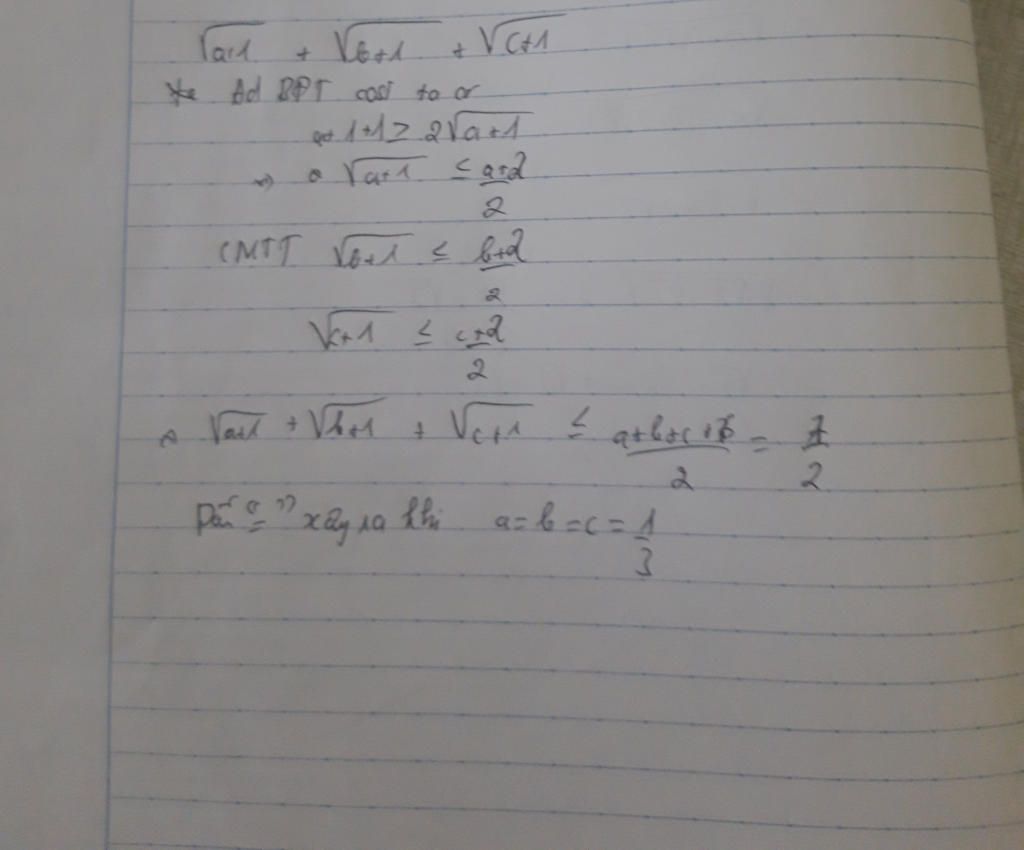 √a+1 + √b+1 + √c+1
Ad BĐT cosi ta
a+1+1 ≥ 2√a+1
=> √a+1 ≤ a+2/2
CMTT √b+1 ≤ b+2/2
√c+1 ≤ c+2/2
√a+1 + √b+1 + √c+1 ≤ a+b+c+6/2 = 7/2
Dấu "=" xảy ra khi a=b=c=1/3